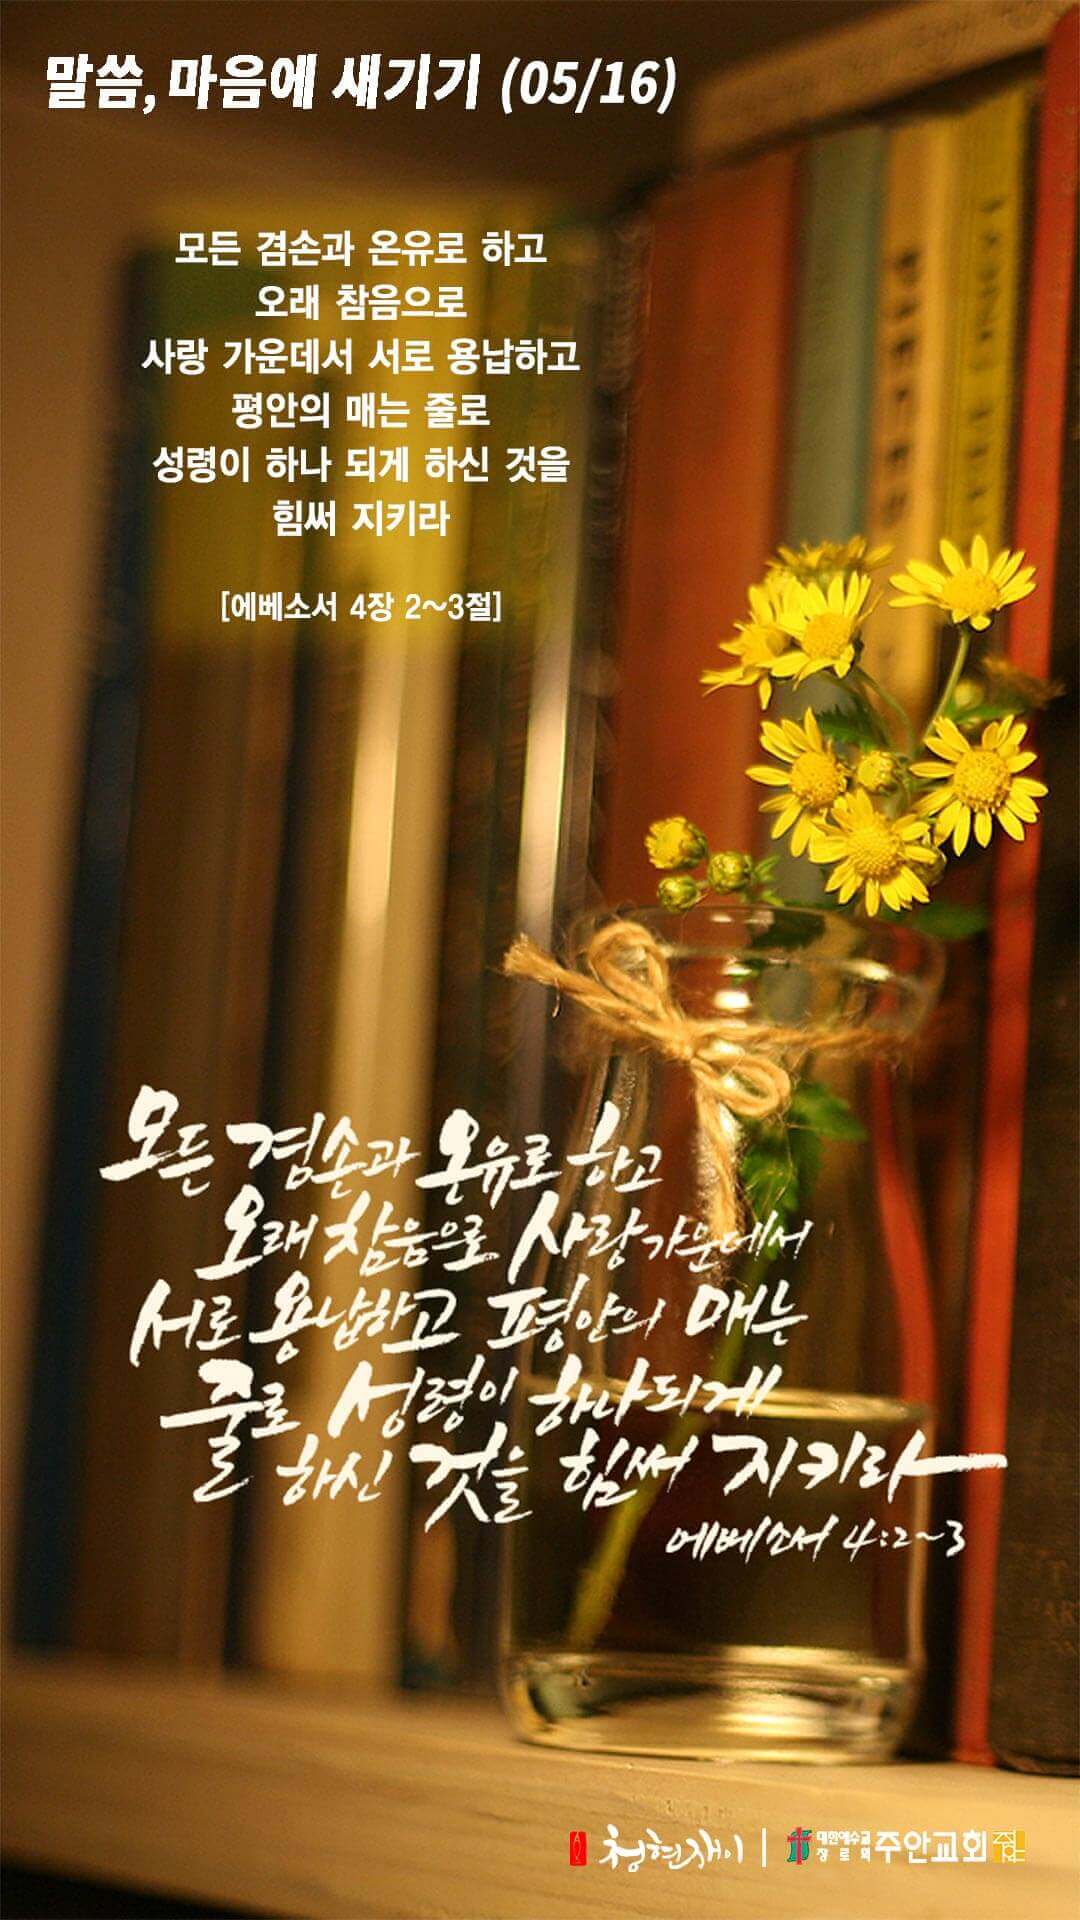 말씀, 마음에 새기기 (05/16)
모든 겸손과 온유로 하고
오래 참음으로
사랑 가운데서 서로 용납하고
평안의 매는 줄로
성령이 하나 되게 하신 것을
힘써 지키라
[에베소서 4장 2~3절]
모든 겸손과 온유로 하고
오래 참음으로 사랑 가운데서
서로 용납하고 평안의 매는
줄로 성령이 하나 되게
하신 것을 힘써 지키라
에베소서 4:2~3
청현재이
대한예수교
장로회
주안교회